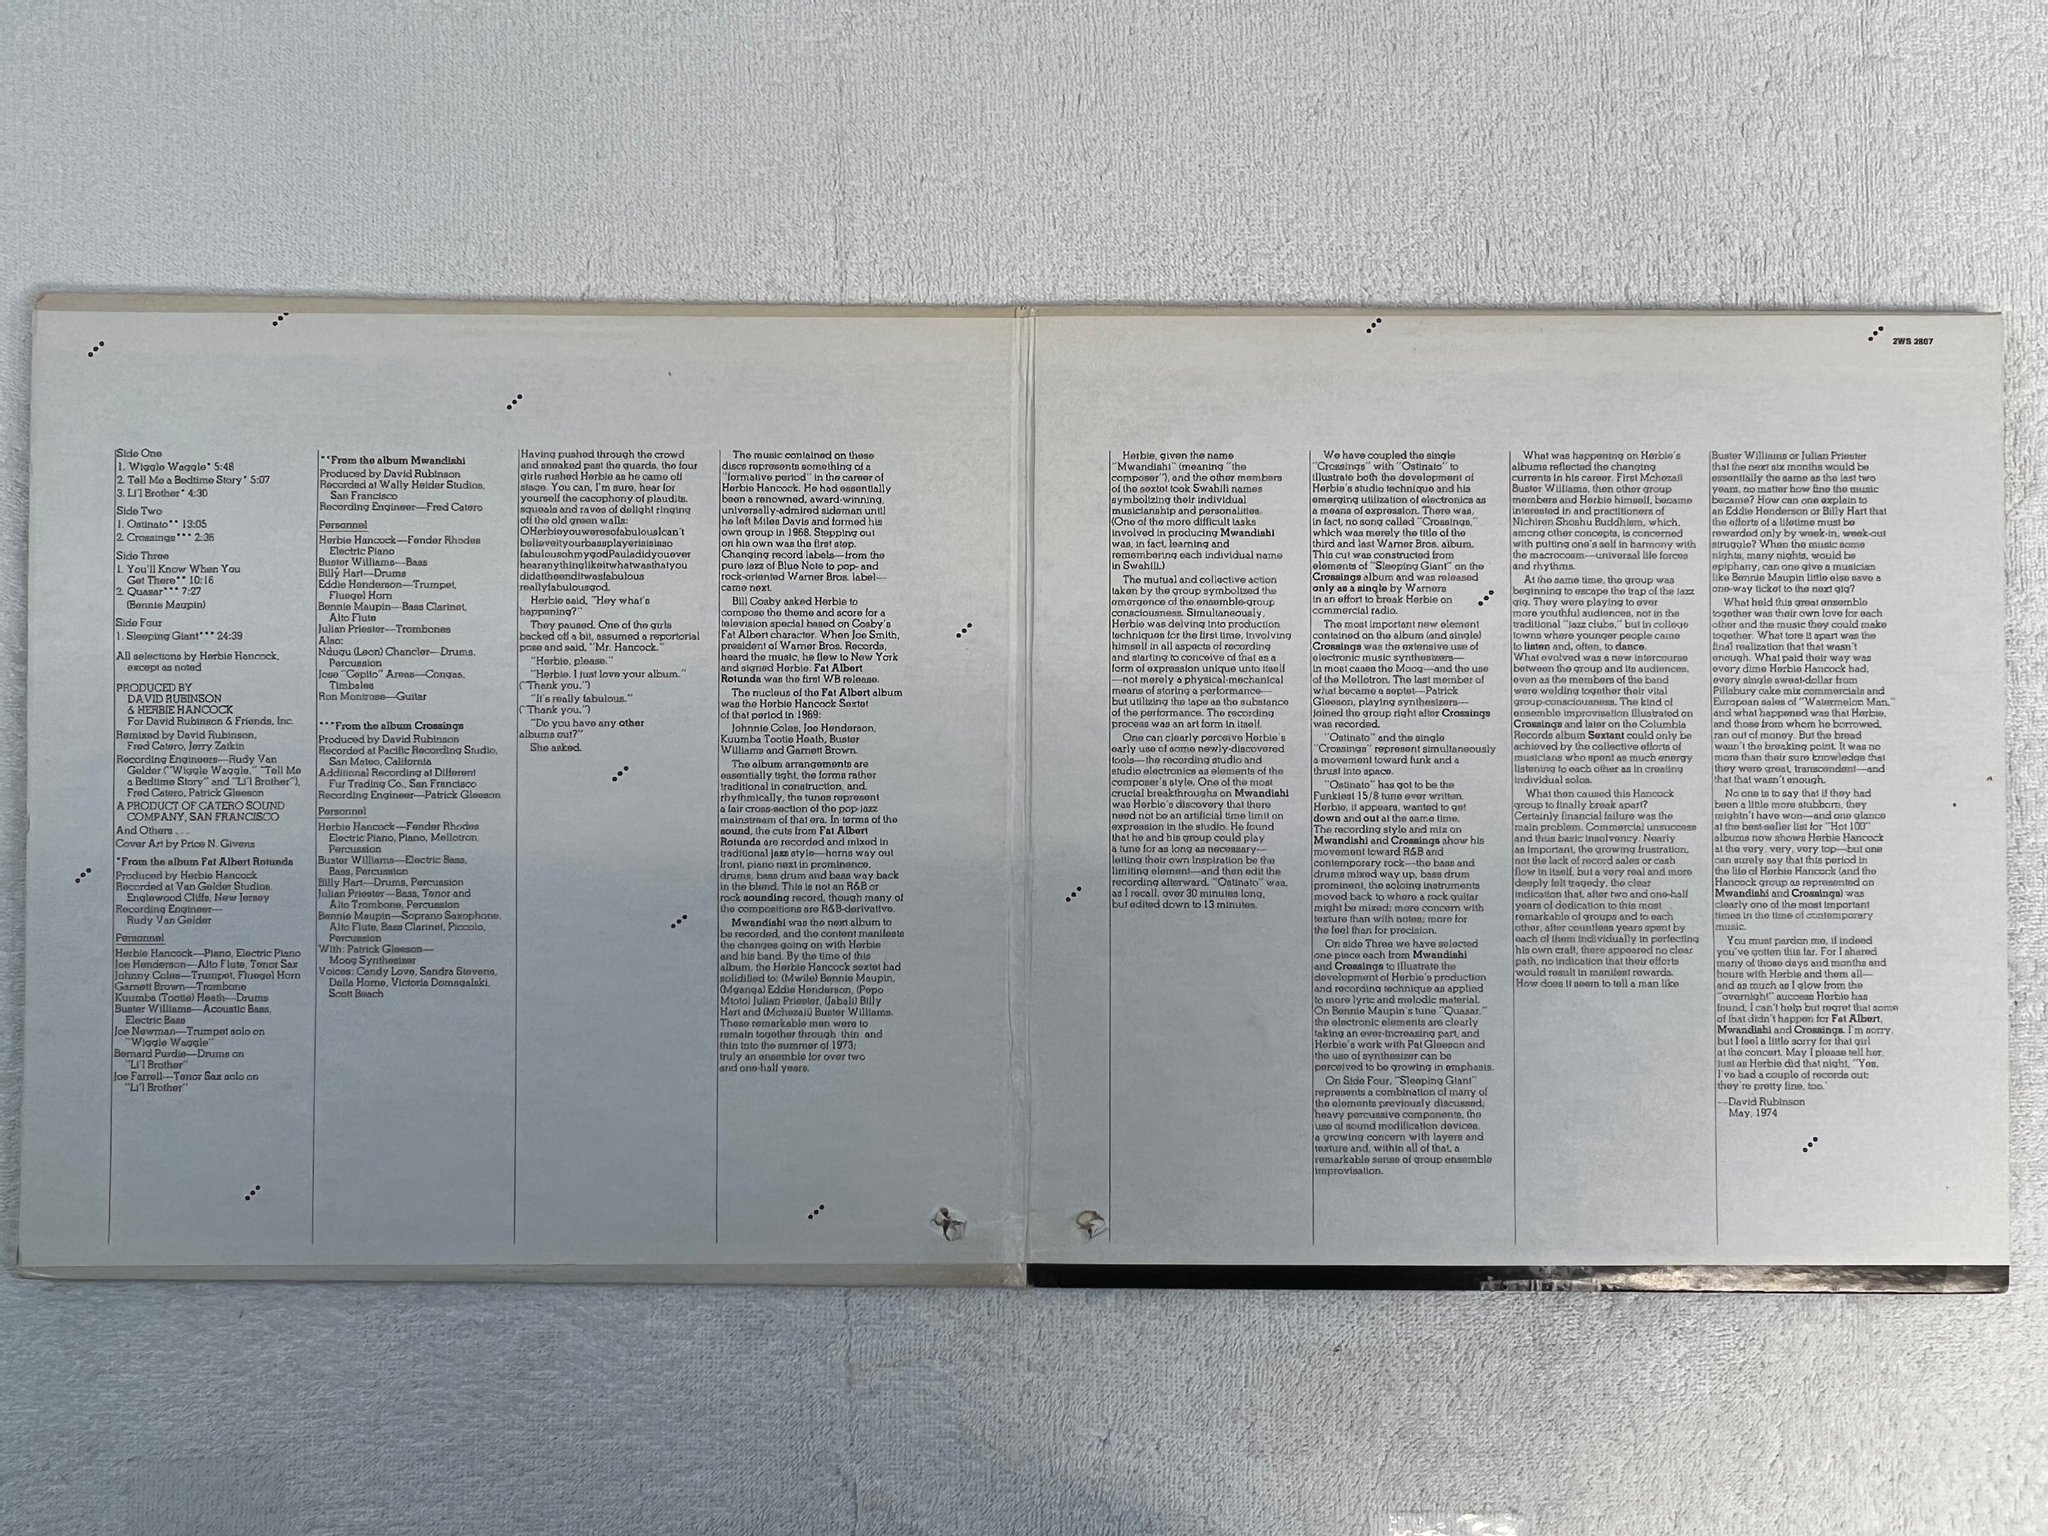 2WS 2807
Side One
1. Wiggle Waggle* 5:48
2. Tell Me a Bedtime Story* 5:07
3. Li'l Brother* 4:30
Side Two
1. Ostinato** 13:05
2. Crossings*** 2:36
Side Three
1. You'll Know When You
Get There** 10:16
2. Quasar*** 7:27
(Bennie Maupin)
Side Four
1. Sleeping Giant*** 24:39
All selections by Herbie Hancock,
except as noted
PRODUCED BY
DAVID RUBINSON
& HERBIE HANCOCK
For David Rubinson & Friends, Inc.
Remixed by David Rubinson,
Fred Catero, Jerry Zatkin
Recording Engineers—Rudy Van
Gelder ("Wiggle Waggle," "Tell Me
a Bedtime Story" and "Li'l Brother"),
Fred Catero, Patrick Gleeson
A PRODUCT OF CATERO SOUND
COMPANY, SAN FRANCISCO
And Others . . .
Cover Art by Price N. Givens
*From the album Fat Albert Rotunda
Produced by Herbie Hancock
Recorded at Van Gelder Studios,
Englewood Cliffs, New Jersey
Recording Engineer—
Rudy Van Gelder
Personnel
Herbie Hancock—Piano, Electric Piano
Joe Henderson—Alto Flute, Tenor Sax
Johnny Coles—Trumpet, Fluegel Horn
Garnett Brown—Trombone
Kuumba (Tootie) Heath—Drums
Buster Williams—Acoustic Bass,
Electric Bass
Joe Newman—Trumpet solo on
"Wiggle Waggle"
Bernard Purdie—Drums on
"Li'l Brother"
Joe Farrell—Tenor Sax solo on
"Li'l Brother"
**From the album Mwandishi
Produced by David Rubinson
Recorded at Wally Heider Studios,
San Francisco
Recording Engineer—Fred Catero
Personnel
Herbie Hancock—Fender Rhodes
Electric Piano
Buster Williams—Bass
Billy Hart—Drums
Eddie Henderson—Trumpet,
Fluegel Horn
Bennie Maupin—Bass Clarinet,
Alto Flute
Julian Priester—Trombones
Also:
Ndugu (Leon) Chancler—Drums,
Percussion
Jose "Cepito" Areas—Congas,
Timbales
Ron Montrose—Guitar
***From the album Crossings
Produced by David Rubinson
Recorded at Pacific Recording Studio,
San Mateo, California
Additional Recording at Different
Fur Trading Co., San Francisco
Recording Engineer—Patrick Gleeson
Personnel
Herbie Hancock—Fender Rhodes
Electric Piano, Piano, Mellotron,
Percussion
Buster Williams—Electric Bass,
Bass, Percussion
Billy Hart—Drums, Percussion
Julian Priester—Bass, Tenor and
Alto Trombone, Percussion
Bennie Maupin—Soprano Saxophone,
Alto Flute, Bass Clarinet, Piccolo,
Percussion
With: Patrick Gleeson—
Moog Synthesizer
Voices: Candy Love, Sandra Stevens,
Della Horne, Victoria Domagalski,
Scott Beach
Having pushed through the crowd
and sneaked past the guards, the four
girls rushed Herbie as he came off
stage. You can, I'm sure, hear for
yourself the cacophony of plaudits,
squeals and raves of delight ringing
off the old green walls:
OHerbieyouweresofabulousIcan't
believeityourbassplayerisisso
fabulousohmygodPauladidyouever
hearanythinglikeitwhatwasthatyou
didattheenditwasfabulous
reallyfabulousgod.
Herbie said, "Hey what's
happening?"
They paused. One of the girls
backed off a bit, assumed a reportorial
pose and said, "Mr. Hancock."
"Herbie, please."
"Herbie. I just love your album."
("Thank you.")
"It's really fabulous."
("Thank you.")
"Do you have any other
albums out?"
She asked.
The music contained on these
discs represents something of a
"formative period" in the career of
Herbie Hancock. He had essentially
been a renowned, award-winning,
universally-admired sideman until
he left Miles Davis and formed his
own group in 1968. Stepping out
on his own was the first step.
Changing record labels—from the
pure jazz of Blue Note to pop- and
rock-oriented Warner Bros. label—
came next.
Bill Cosby asked Herbie to
compose the theme and score for a
television special based on Cosby's
Fat Albert character. When Joe Smith,
president of Warner Bros. Records,
heard the music, he flew to New York
and signed Herbie. Fat Albert
Rotunda was the first WB release.
The nucleus of the Fat Albert album
was the Herbie Hancock Sextet
of that period in 1969:
Johnnie Coles, Joe Henderson,
Kuumba Tootie Heath, Buster
Williams and Garnett Brown.
The album arrangements are
essentially tight, the forms rather
traditional in construction, and,
rhythmically, the tunes represent
a fair cross-section of the pop-jazz
mainstream of that era. In terms of the
sound, the cuts from Fat Albert
Rotunda are recorded and mixed in
traditional jazz style—horns way out
front, piano next in prominence,
drums, bass drum and bass way back
in the blend. This is not an R&B or
rock sounding record, though many of
the compositions are R&B-derivative.
Mwandishi was the next album to
be recorded, and the content manifests
the changes going on with Herbie
and his band. By the time of this
album, the Herbie Hancock sextet had
solidified to: (Mwile) Bennie Maupin,
(Mganga) Eddie Henderson, (Pepo
Mtoto) Julian Priester, (Jabali) Billy
Hart and (Mchezaji) Buster Williams.
These remarkable men were to
remain together through thin and
thin into the summer of 1973;
truly an ensemble for over two
and one-half years.
Herbie, given the name
"Mwandishi" (meaning "the
composer"), and the other members
of the sextet took Swahili names
symbolizing their individual
musicianship and personalities.
(One of the more difficult tasks
involved in producing Mwandishi
was, in fact, learning and
remembering each individual name
in Swahili.)
The mutual and collective action
taken by the group symbolized the
emergence of the ensemble-group
consciousness. Simultaneously,
Herbie was delving into production
techniques for the first time, involving
himself in all aspects of recording
and starting to conceive of that as a
form of expression unique unto itself
—not merely a physical-mechanical
means of storing a performance—
but utilizing the tape as the substance
of the performance. The recording
process was an art form in itself.
One can clearly perceive Herbie's
early use of some newly-discovered
tools—the recording studio and
studio electronics as elements of the
composer's style. One of the most
crucial breakthroughs on Mwandishi
was Herbie's discovery that there
need not be an artificial time limit on
expression in the studio. He found
that he and his group could play
a tune for as long as necessary—
letting their own inspiration be the
limiting element—and then edit the
recording afterward. "Ostinato" was,
as I recall, over 30 minutes long,
but edited down to 13 minutes.
We have coupled the single
"Crossings" with "Ostinato" to
illustrate both the development of
Herbie's studio technique and his
emerging utilization of electronics as
a means of expression. There was,
in fact, no song called "Crossings,"
which was merely the title of the
third and last Warner Bros. album.
This cut was constructed from
elements of "Sleeping Giant" on the
Crossings album and was released
only as a single by Warners
in an effort to break Herbie on
commercial radio.
The most important new element
contained on the album (and single)
Crossings was the extensive use of
electronic music synthesizers—
in most cases the Moog—and the use
of the Mellotron. The last member of
what became a septet—Patrick
Gleeson, playing synthesizers—
joined the group right after Crossings
was recorded.
"Ostinato" and the single
"Crossings" represent simultaneously
a movement toward funk and a
thrust into space.
"Ostinato" has got to be the
Funkiest 15/8 tune ever written.
Herbie, it appears, wanted to get
down and out at the same time.
The recording style and mix on
Mwandishi and Crossings show his
movement toward R&B and
contemporary rock—the bass and
drums mixed way up, bass drum
prominent, the soloing instruments
moved back to where a rock guitar
might be mixed; more concern with
texture than with notes; more for
the feel than for precision.
On side Three we have selected
one piece each from Mwandishi
and Crossings to illustrate the
development of Herbie's production
and recording technique as applied
to more lyric and melodic material.
On Bennie Maupin's tune "Quasar,"
the electronic elements are clearly
taking an ever-increasing part, and
Herbie's work with Pat Gleeson and
the use of synthesizer can be
perceived to be growing in emphasis.
On Side Four, "Sleeping Giant"
represents a combination of many of
the elements previously discussed;
heavy percussive components, the
use of sound modification devices,
a growing concern with layers and
texture and, within all of that, a
remarkable sense of group ensemble
improvisation.
What was happening on Herbie's
albums reflected the changing
currents in his career. First Mchezaji
Buster Williams, then other group
members and Herbie himself, became
interested in and practitioners of
Nichiren Shoshu Buddhism, which,
among other concepts, is concerned
with putting one's self in harmony with
the macrocosm—universal life forces
and rhythms.
At the same time, the group was
beginning to escape the trap of the jazz
gig. They were playing to ever
more youthful audiences, not in the
traditional "jazz clubs," but in college
towns where younger people came
to listen and, often, to dance.
What evolved was a new intercourse
between the group and its audiences,
even as the members of the band
were welding together their vital
group-consciousness. The kind of
ensemble improvisation illustrated on
Crossings and later on the Columbia
Records album Sextant could only be
achieved by the collective efforts of
musicians who spent as much energy
listening to each other as in creating
individual solos.
What then caused this Hancock
group to finally break apart?
Certainly financial failure was the
main problem. Commercial unsuccess
and thus basic insolvency. Nearly
as important, the growing frustration,
not the lack of record sales or cash
flow in itself, but a very real and more
deeply felt tragedy, the clear
indication that, after two and one-half
years of dedication to this most
remarkable of groups and to each
other, after countless years spent by
each of them individually in perfecting
his own craft, there appeared no clear
path, no indication that their efforts
would result in manifest rewards.
How does it seem to tell a man like
Buster Williams or Julian Priester
that the next six months would be
essentially the same as the last two
years, no matter how fine the music
became? How can one explain to
an Eddie Henderson or Billy Hart that
the efforts of a lifetime must be
rewarded only by week-in, week-out
struggle? When the music some
nights, many nights, would be
epiphany, can one give a musician
like Bennie Maupin little else save a
one-way ticket to the next gig?
What held this great ensemble
together was their own love for each
other and the music they could make
together. What tore it apart was the
final realization that that wasn't
enough. What paid their way was
every dime Herbie Hancock had,
every single sweat-dollar from
Pillsbury cake mix commercials and
European sales of "Watermelon Man,"
and what happened was that Herbie,
and those from whom he borrowed,
ran out of money. But the bread
wasn't the breaking point. It was no
more than their sure knowledge that
they were great, transcendent—and
that that wasn't enough.
No one is to say that if they had
been a little more stubborn, they
mightn't have won—and one glance
at the best-seller list for "Hot 100"
albums now shows Herbie Hancock
at the very, very, very top—but one
can surely say that this period in
the life of Herbie Hancock (and the
Hancock group as represented on
Mwandishi and Crossings) was
clearly one of the most important
times in the time of contemporary
music.
You must pardon me, if indeed
you've gotten this far. For I shared
many of those days and months and
hours with Herbie and them all—
and as much as I glow from the
"overnight" success Herbie has
found, I can't help but regret that some
of that didn't happen for Fat Albert,
Mwandishi and Crossings. I'm sorry,
but I feel a little sorry for that girl
at the concert. May I please tell her,
just as Herbie did that night, "Yes,
I've had a couple of records out;
they're pretty fine, too.'
--David Rubinson
May, 1974